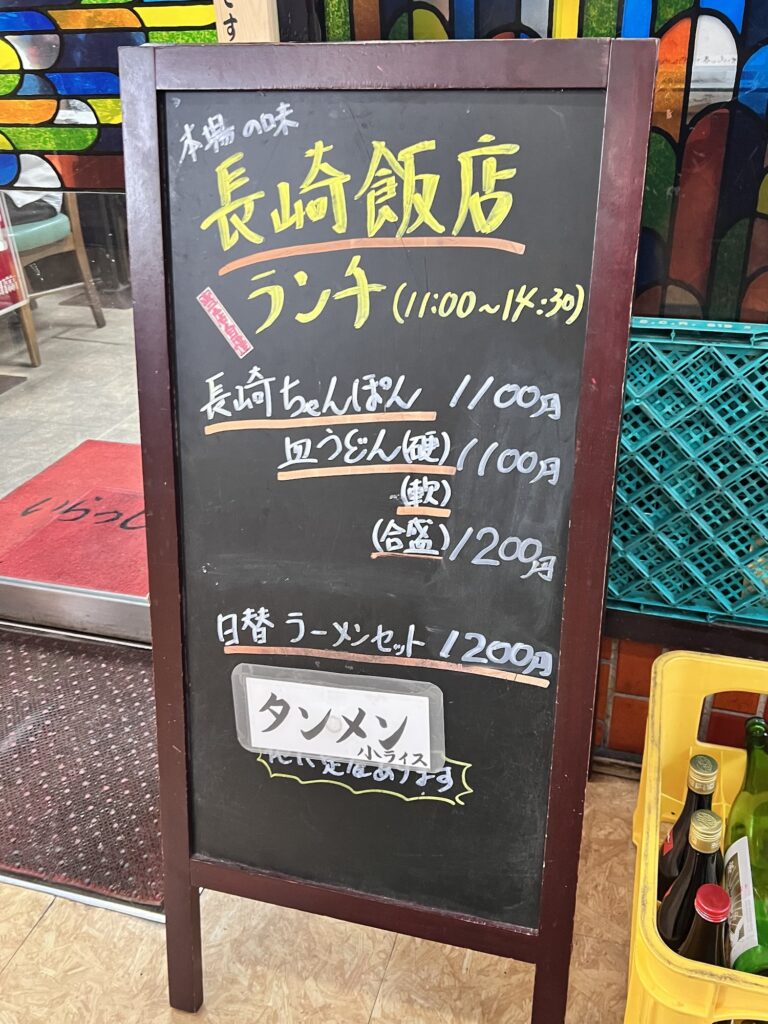 です
本場の味
長崎飯店
ランチ(11:00~14:30)
長崎ちゃんぽん 1100円
皿うどん(硬) 1100円
(軟)
(合盛) 1200円
日替 ラーメンセット 1200円
タンメン
小ライス
定食あります
いらっし